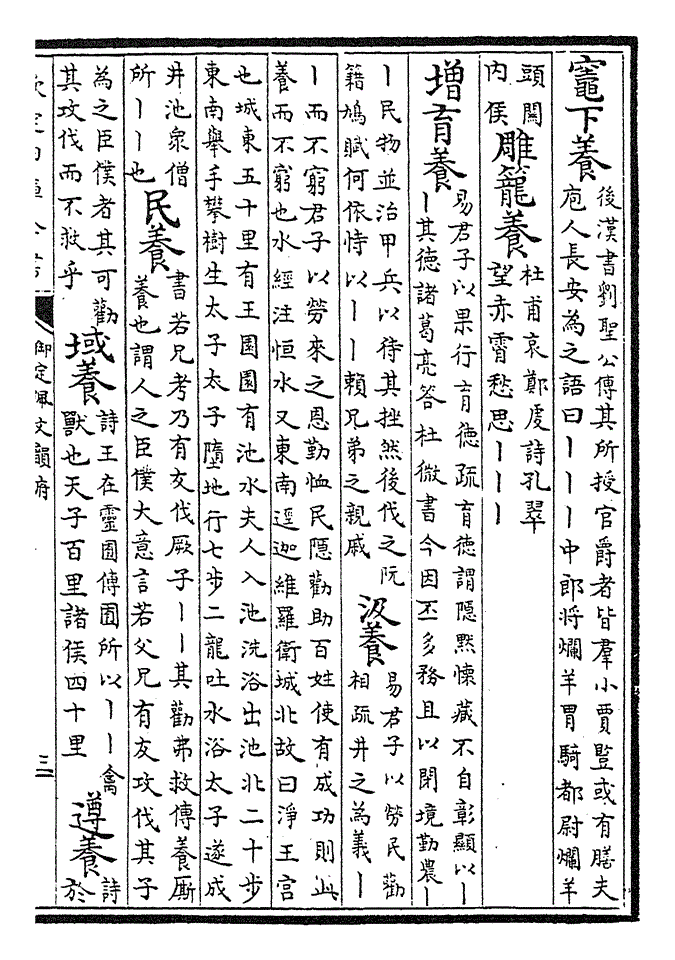 竈下養
後漢書劉聖公傳其所授官爵者皆羣小賈豎或有膳夫
庖人長安為之語曰丨丨丨中郎將爛羊胃騎都尉爛羊
頭關
内侯
雕籠養
杜甫哀鄭虔詩孔翠
望赤霄愁思丨丨丨
增育養
易君子以果行育徳疏育徳謂隱黙懷藏不自彰顯以丨
丨其徳諸葛亮答杜微書今因丕多務且以閉境勤農丨
丨民物並治甲兵以待其挫然後伐之阮
籍鳩賦何依恃以丨丨賴兄弟之親戚
汲養
易君子以勞民勸
相疏井之為義丨
丨而不窮君子以勞來之恩勤恤民隱勸助百姓使有成功則此
養而不窮也水經注恒水又東南逕迦維羅衛城北故曰淨王宮
也城東五十里有王園園有池水夫人入池洗浴出池北二十步
東南舉手攀樹生太子太子墮地行七步二龍吐水浴太子遂成
井池衆僧
所丨丨也
民養
書若兄考乃有友伐厥子丨丨其勸弗救傳養厮
養也謂人之臣僕大意言若父兄有友攻伐其子
為之臣僕者其可勸
其攻伐而不救乎
域養
詩王在靈囿傳囿所以丨丨禽
獸也天子百里諸侯四十里
遵養
詩
於
欽定四庫全書
御定佩文韻府
三